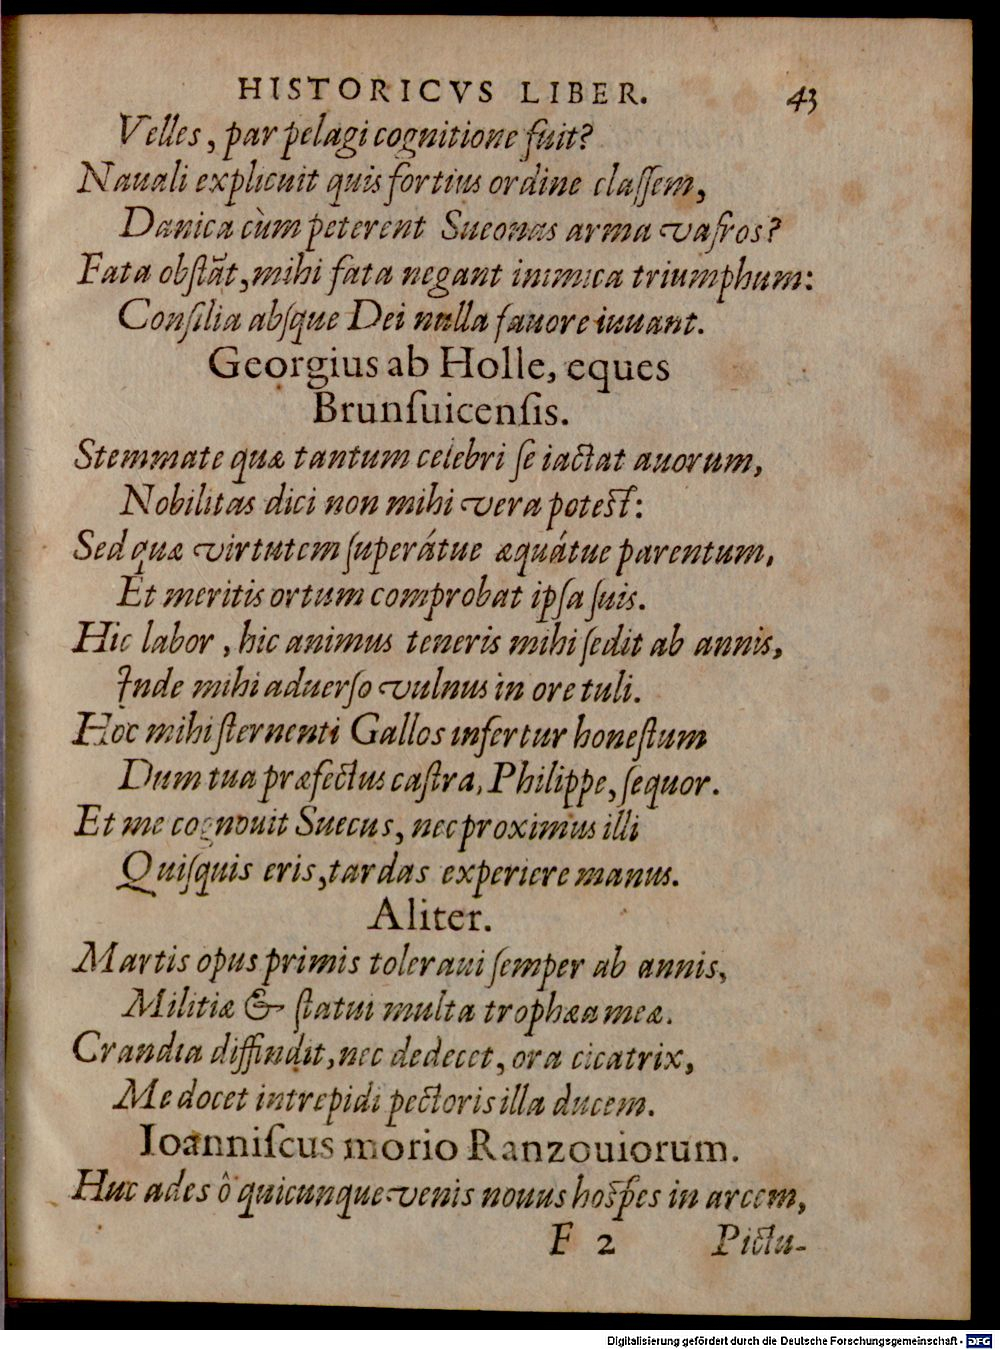 HISTORICVS LIBER. 43
Velles, par pelagi cognitione fuit?
Nauali explicuit quis fortius ordine claſſem,
Danica cùm peterent Sueonas arma vafros?
Fata obſtãt, mihi fata negant inimica triumphum:
Conſilia abſque Dei nulla fauore iuuant.
Georgius ab Holle, eques
Brunſuicenſis.
Stemmate quæ tantum celebri ſe iactat auorum,
Nobilitas dici non mihi vera poteſt:
Sed quæ virtutem ſuperátue æquátue parentum,
Et meritis ortum comprobat ipſa ſuis.
Hic labor, hic animus teneris mihi ſedit ab annis,
Inde mihi aduerſo vulnus in ore tuli.
Hoc mihi ſternenti Gallos infertur honeſtum
Dum tua præfectus caſtra, Philippe, ſequor.
Et me cognouit Suecus, nec proximus illi
Quiſquis eris, tardas experiere manus.
Aliter.
Martis opus primis toleraui ſemper ab annis,
Militiæ & ſtatui multa trophæa meæ.
Grandia diffindit, nec dedecet, ora cicatrix,
Me docet intrepidi pectoris illa ducem.
Ioanniſcus morio Ranzouiorum.
Huc ades ô quicunque venis nouus hoſpes in arcem,
F 2 Pictu-
Digitalisierung gefördert durch die Deutsche Forschungsgemeinschaft - DFG